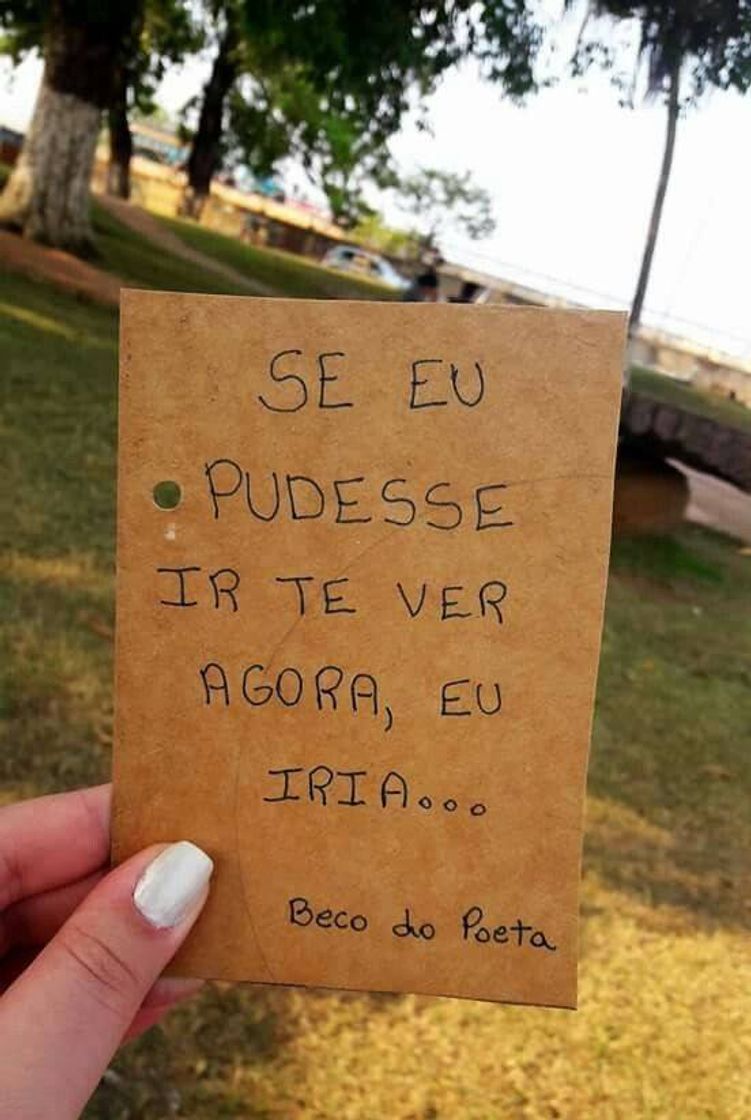 SE EU
PUDESSE
IR TE VER
AGORA, EU
IRIA...
Beco do Poeta